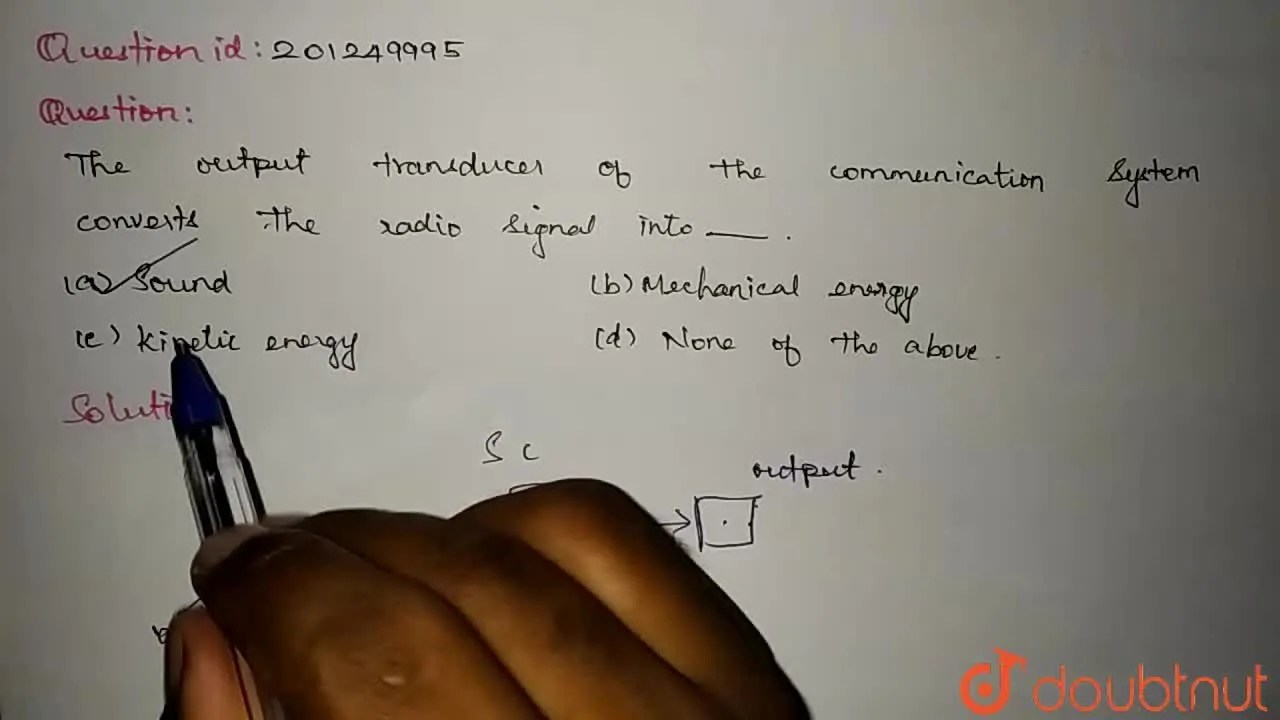 Question id: 201249995
Question:
The output transducer of the communication system
converts the radio signal into ___.
(a) Sound (b) Mechanical energy
(c) Kinetic energy (d) None of the above.
output.
doubtnut